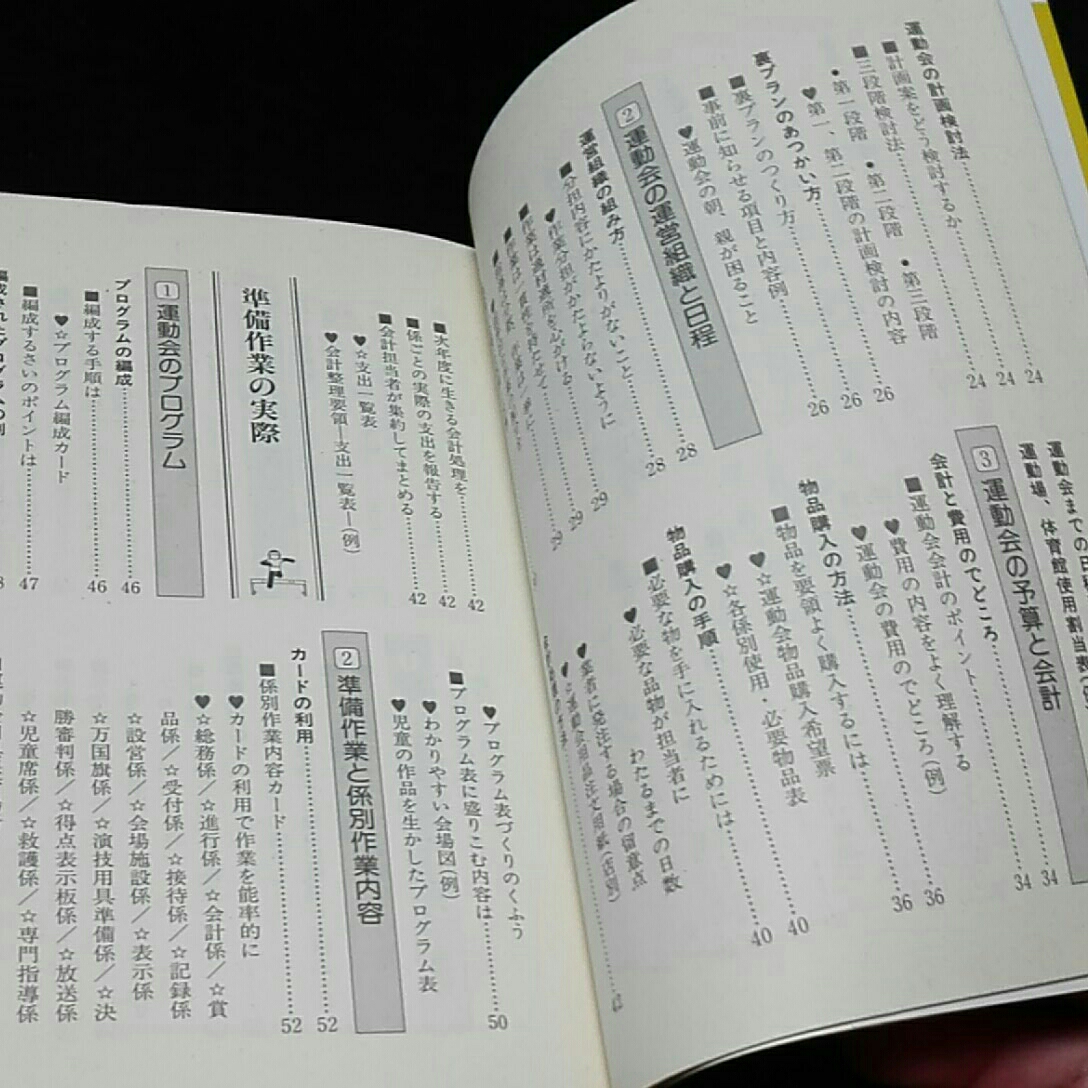 運動会の計画検討法……24
■計画案をどう検討するか……24
■三段階検討法……24
●第一段階 ●第二段階 ●第三段階
♥第一、第二段階の計画検討の内容
裏プランのあつかい方……26
■裏プランのつくり方……26
■事前に知らせる項目と内容例……26
♥運動会の朝、親が困ること
2 運動会の運営組織と日程
運営組織の組み方……28
■分担内容にかたよりがないこと……28
♥作業分担がかたよらないように
■作業は適材適所を心がける……29
■作業は一貫性を持たせて……29
運動会までの日
運動場、体育館使用割当表
3 運動会の予算と会計
会計と費用のでどころ……34
■運動会会計のポイント……34
♥費用の内容をよく理解する
♥運動会の費用のでどころ(例)
物品購入の方法……36
■物品を要領よく購入するには……36
♥☆運動会物品購入希望票
♥☆各係別使用・必要物品表
物品購入の手順……40
■必要な物を手に入れるためには……40
♥必要な品物が担当者に
わたるまでの日数
♥業者に発注する場合の留意点
♥☆運動会用品注文用紙(店別)
■次年度に生きる会計処理を……42
■係ごとの実際の支出を報告する……42
■会計担当者が集約してまとめる……42
♥☆支出一覧表
♥会計整理要領―支出一覧表―(例)
準備作業の実際
1 運動会のプログラム
プログラムの編成……46
■編成する手順は……46
♥☆プログラム編成カード
■編成するさいのポイントは……47
♥プログラム表づくりのくふう
■プログラム表に盛りこむ内容は……50
♥わかりやすい会場図(例)
♥児童の作品を生かしたプログラム表
2 準備作業と係別作業内容
カードの利用……52
■係別作業内容カード……52
♥カードの利用で作業を能率的に
♥☆総務係/☆進行係/☆会計係/☆賞
品係/☆受付係/☆接待係/☆記録係
☆設営係/☆会場施設係/☆表示係
☆万国旗係/☆演技用具準備係/☆決
勝審判係/☆得点表示板係/☆放送係
☆児童席係/☆救護係/☆専門指導係